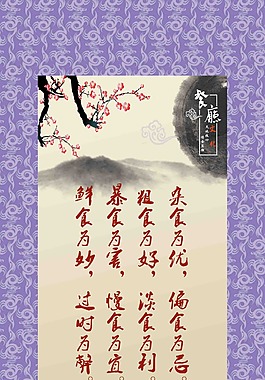 餐廳文化
杂食为优，偏食为忌
粗食为好，淡食为利
暴食为害，慢食为宜
鲜食为妙，过时为